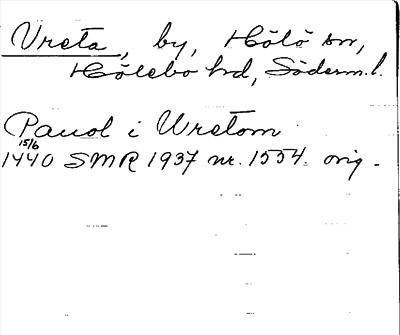 Vreta, by, Hölö sn,
Hölebo hd, Söderm. l.
Pauol i Wretom
15/6
1440 SMR 1937 nr. 1554. orig.